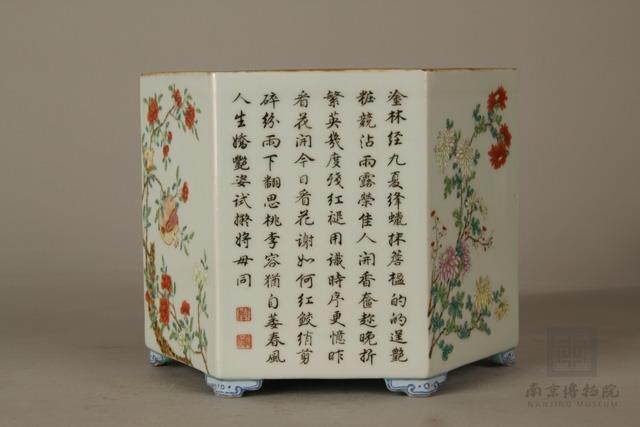 塗林經九夏絳蠟抹楹的的逞艷
粧競沾雨露榮佳人開香奩趁晚折
繁英幾度殘紅褪用識時序更憶昨
看花開今日看花謝如何紅鮫綃剪
碎紛雨下翻思桃李容猶自萎春風
人生嬌艷姿試將毋同
南京博物院
NANJING MUSEUM